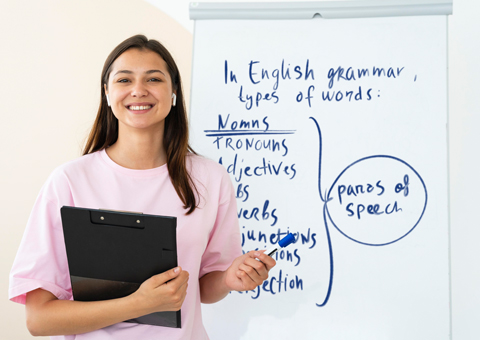 In English grammar,
types of words:
Nomns
PRONOUNS
Adjectives
bs
verbs
junctions
ions
rjection
parts of
speech